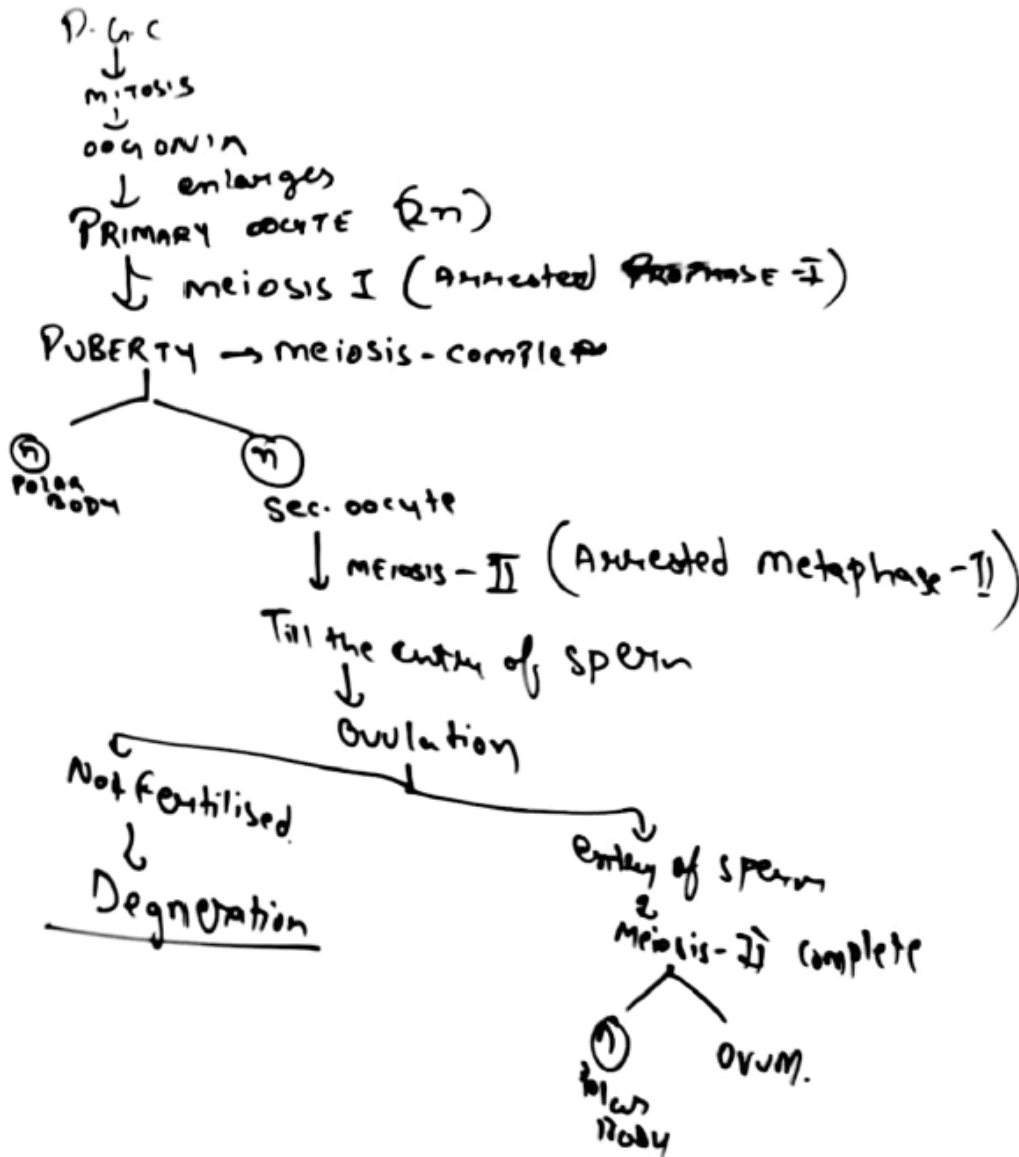 P. G. C
MITOSIS
OOGONIA
enlarges
PRIMARY OOCYTE (2n)
meiosis I (Arrested PROPHASE-I)
PUBERTY → meiosis-complete
n n
POLAR
BODY
Sec. oocyte
MEIOSIS-II (Arrested metaphase-II)
Till the entry of sperm
Ovulation
Not Fertilised.
Degneration
entry of sperm
Meiosis-II complete
n OVUM.
Polar
Body